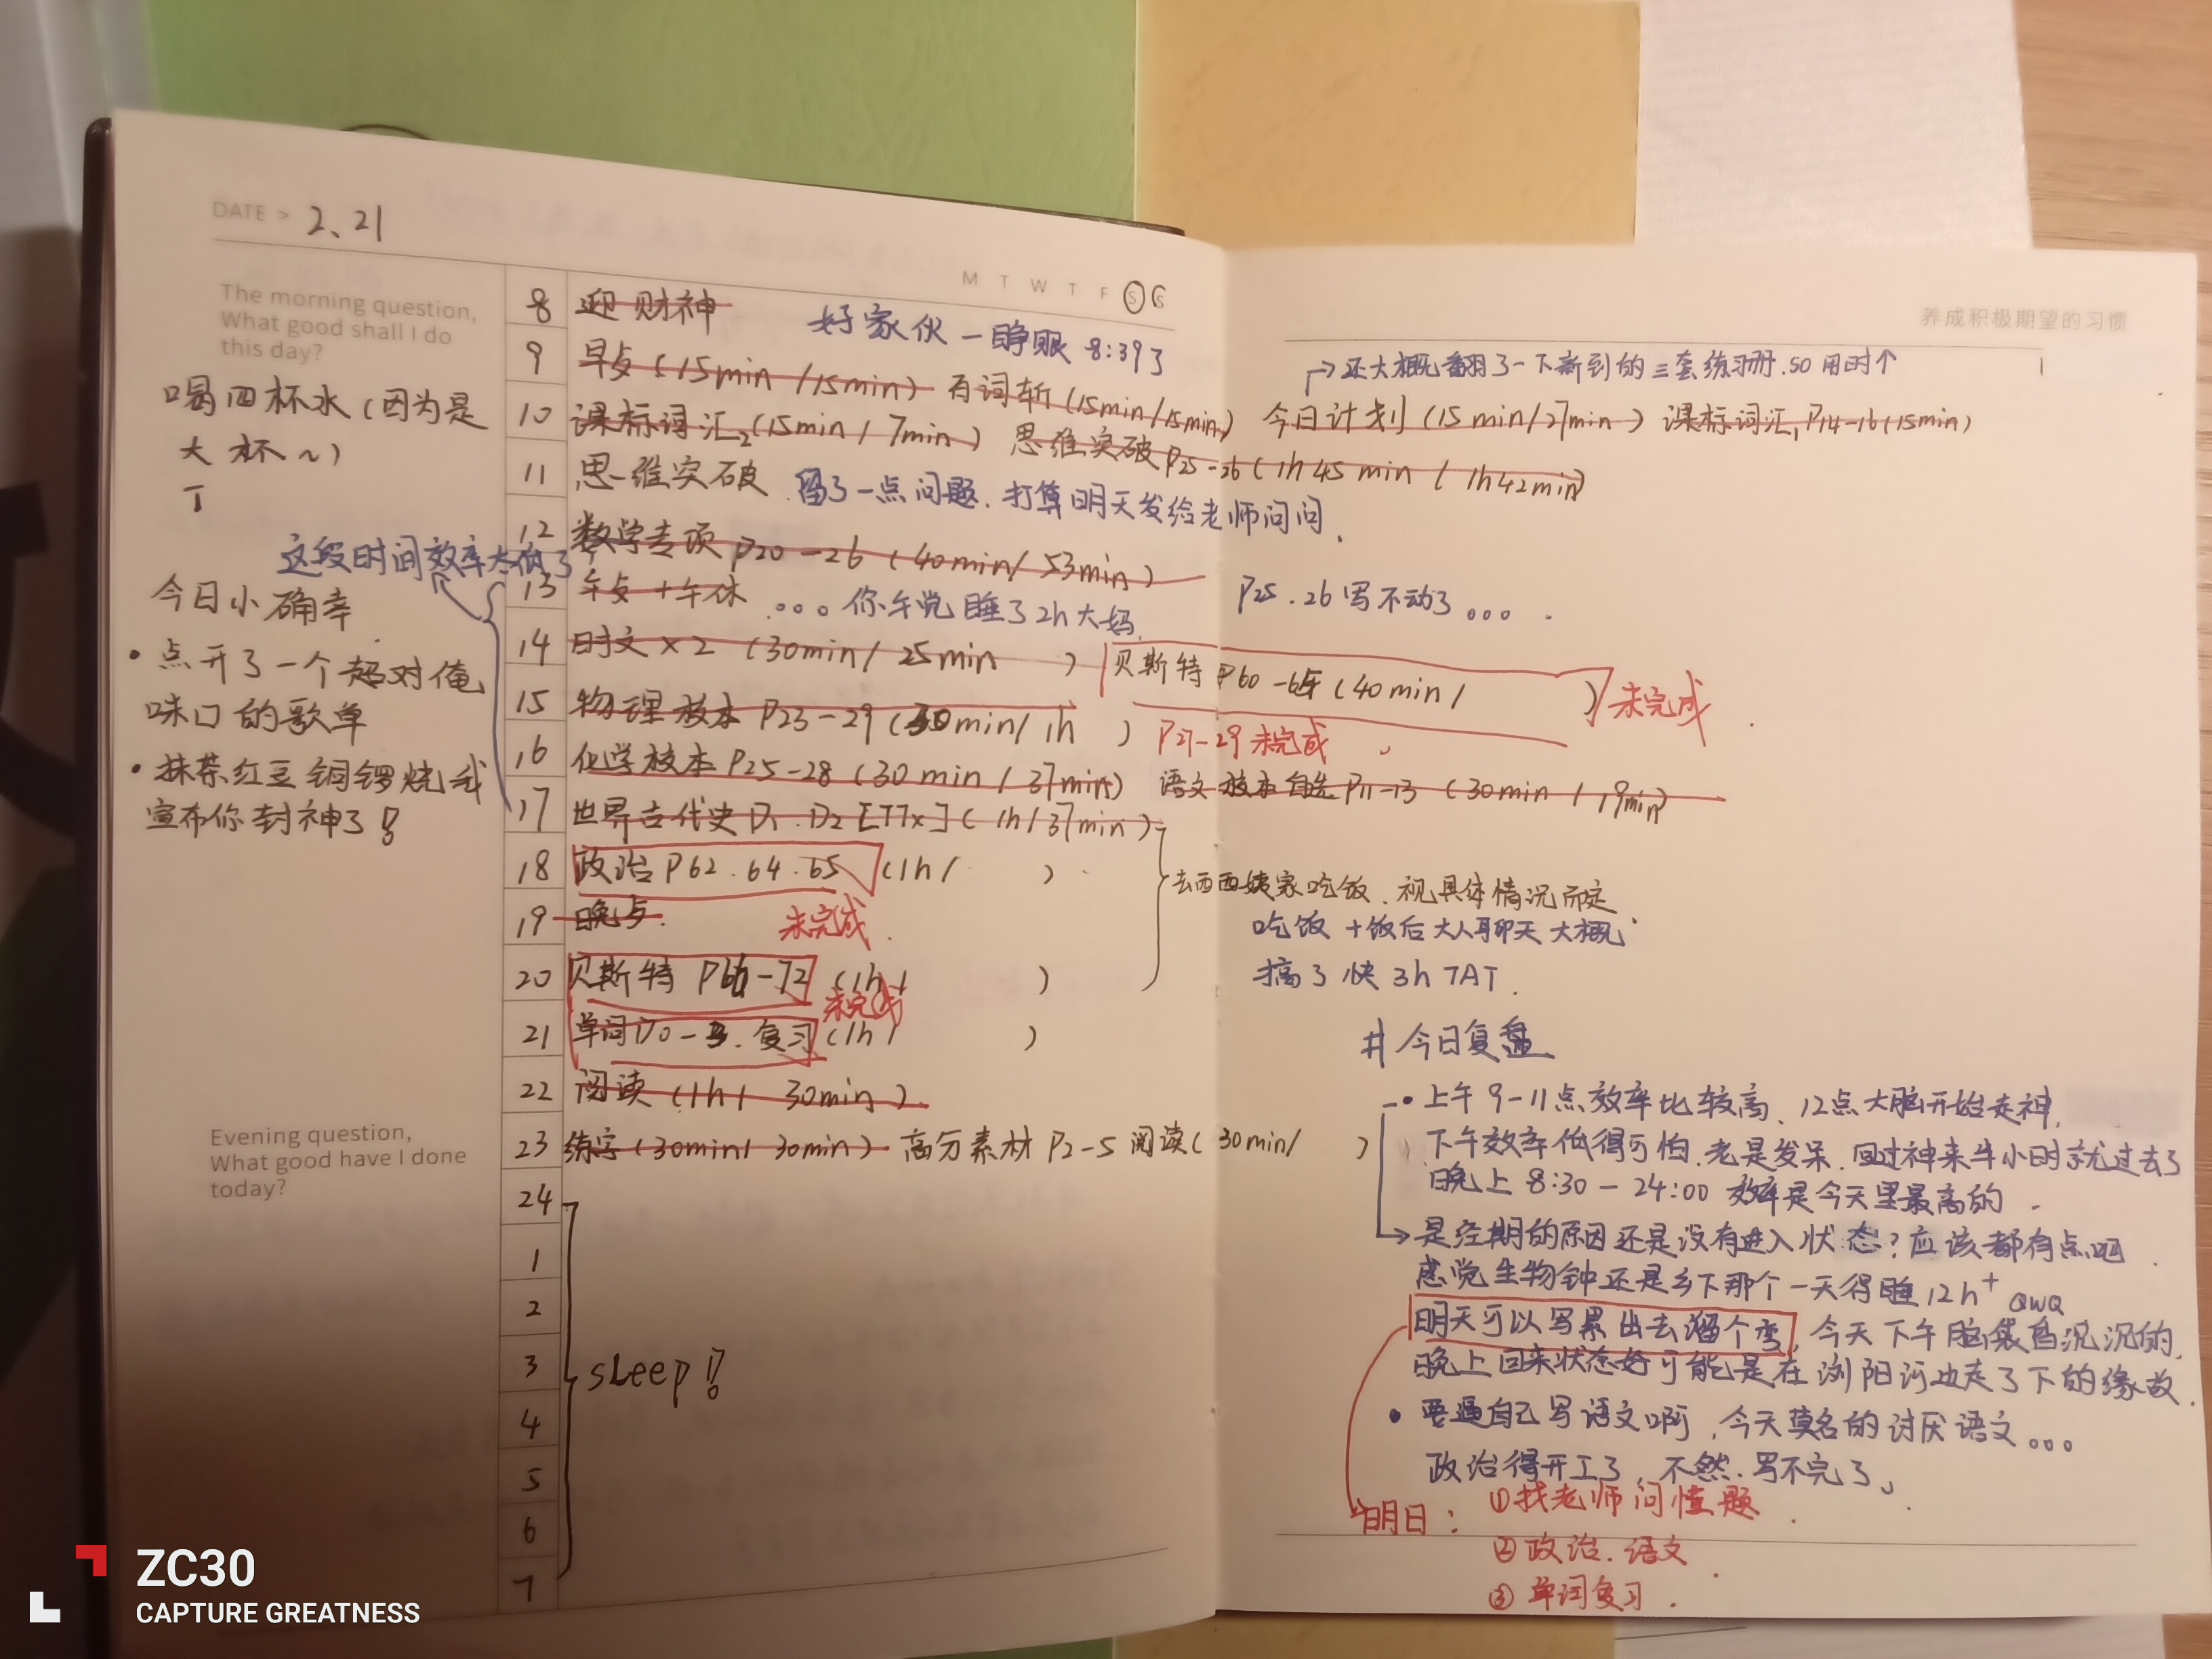 DATE > 2、21
M T W T F S S
The morning question,
What good shall I do
this day?
喝四杯水（因为是
大杯～）
丅
这段时间效率太低了
今日小确幸
• 点开了一个超对俺
味口的歌单
• 抹茶红豆铜锣烧我
宣布你封神了!!
Evening question,
What good have I done
today?
8 迎财神 好家伙一睁眼 8:39了
9 早点（15min /15min） 有词斩（15min/15min）
10 课标词汇2（15min / 7min） 思维突破P25-26（1h45min / 1h42min）
11 思维突破 . 留了一点问题. 打算明天发给老师问问.
12 数学专项 P20-26（40min/ 53min） P25.26写不动了。。。
13 午点+午休 。。。你午觉睡了2h大妈.
14 时文×2（30min/ 25min ） 贝斯特 P60-65（40min/ ） 未完成
15 物理校本 P23-29（30min/ 1h ） P27-29 未完成
16 化学校本 P25-28（30min / 37min） 语文校本自选P11-13（30min / 19min）
17 世界古代史D1.D2[TTx]（1h/37min）
18 政治P62.64.65（1h/ ）
19 晚点. 未完成.
20 贝斯特 P66-72（1h/ ）
未完成
21 单词D0-3.复习（1h/ ）
22 阅读（1h/ 30min）
23 练字（30min/ 30min） 高分素材 P2-5 阅读（30min/ ）
24
1
2
3 sleep!!
4
5
6
7
养成积极期望的习惯
→还大概翻了一下新到的三套练习册.so用时个
今日计划（15min/27min） 课标词汇1 P14-16（15min）
去西西姨家吃饭. 视具体情况而定.
吃饭+饭后大人聊天大概
搞了快3h TAT.
# 今日复盘
• 上午9-11点效率比较高、12点大脑开始走神,
下午效率低得可怕.老是发呆.回过神来半小时就过去了
晚上8:30-24:00效率是今天里最高的.
→是经期的原因还是没有进入状态?应该都有点吧.
感觉生物钟还是乡下那个一天得睡12h+ QWQ
明天可以写累出去溜个弯,今天下午脑袋昏沉沉的,
晚上回来状态好可能是在浏阳河边走了下的缘故.
• 要逼自己写语文啊,今天莫名的讨厌语文。。。
政治得开工了,不然.写不完了。
明日: ①找老师问错题.
②政治.语文.
③单词复习.
ZC30
CAPTURE GREATNESS